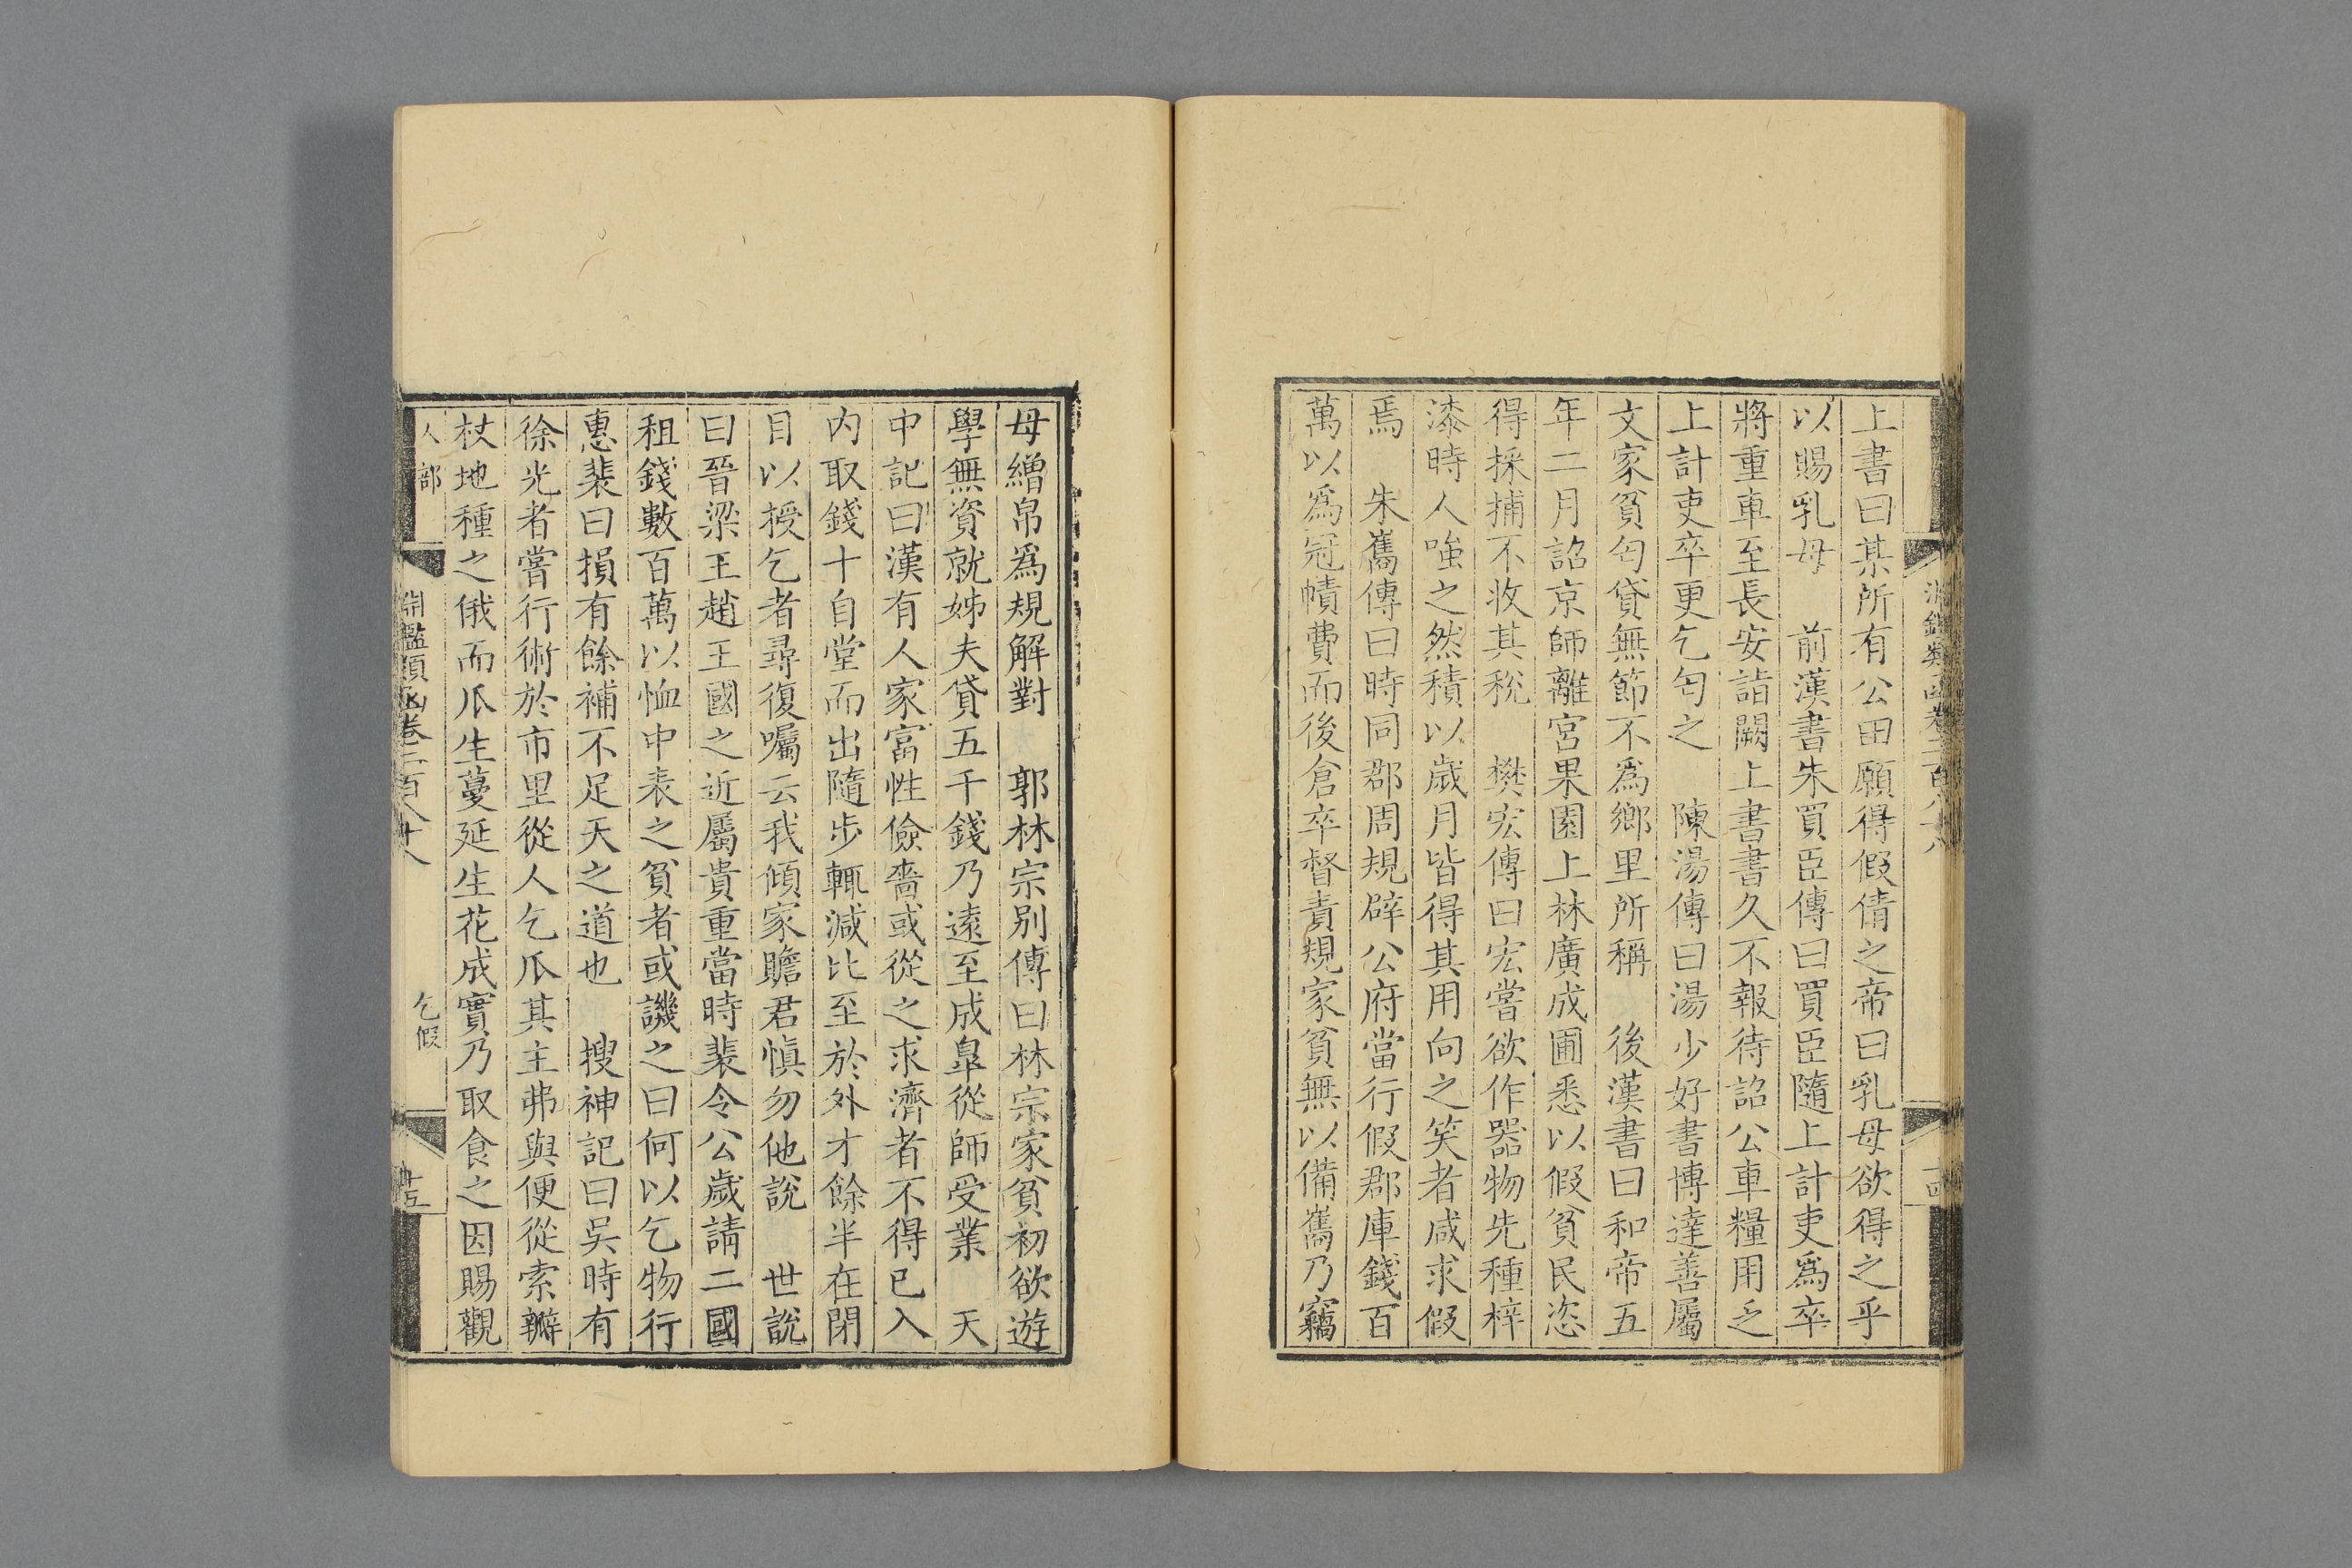 上書曰某所有公田願得假倩之帝曰乳母欲得之乎
以賜乳母　前漢書朱買臣傳曰買臣隨上計吏爲卒
將重車至長安詣闕上書書久不報待詔公車糧用乏
上計吏卒更乞匄之　陳湯傳曰湯少好書博達善屬
文家貧匄貸無節不爲鄉里所稱　後漢書曰和帝五
年二月詔京師離宮果園上林廣成圃悉以假貧民恣
得採捕不收其稅　樊宏傳曰宏嘗欲作器物先種梓
漆時人嗤之然積以歲月皆得其用向之笑者咸求假
焉　朱儁傳曰時同郡周規辟公府當行假郡庫錢百
萬以爲冠幘費而後倉卒督責規家貧無以備儁乃竊
母繒帛爲規解對　郭林宗別傳曰林宗家貧初欲遊
學無資就姊夫貸五千錢乃遠至成臯從師受業　天
中記曰漢有人家富性儉嗇或從之求濟者不得已入
內取錢十自堂而出隨步輒減比至於外才餘半在閉
目以授乞者尋復囑云我傾家贍君慎勿他說　世說
曰晉梁王趙王國之近屬貴重當時裴令公歲請二國
租錢數百萬以恤中表之貧者或譏之曰何以乞物行
惠裴曰損有餘補不足天之道也　搜神記曰吳時有
徐光者嘗行術於市里從人乞瓜其主弗與便從索瓣
杖地種之俄而瓜生蔓延生花成實乃取食之因賜觀
人部　淵鑑類函卷二百八十八　乞假　十五